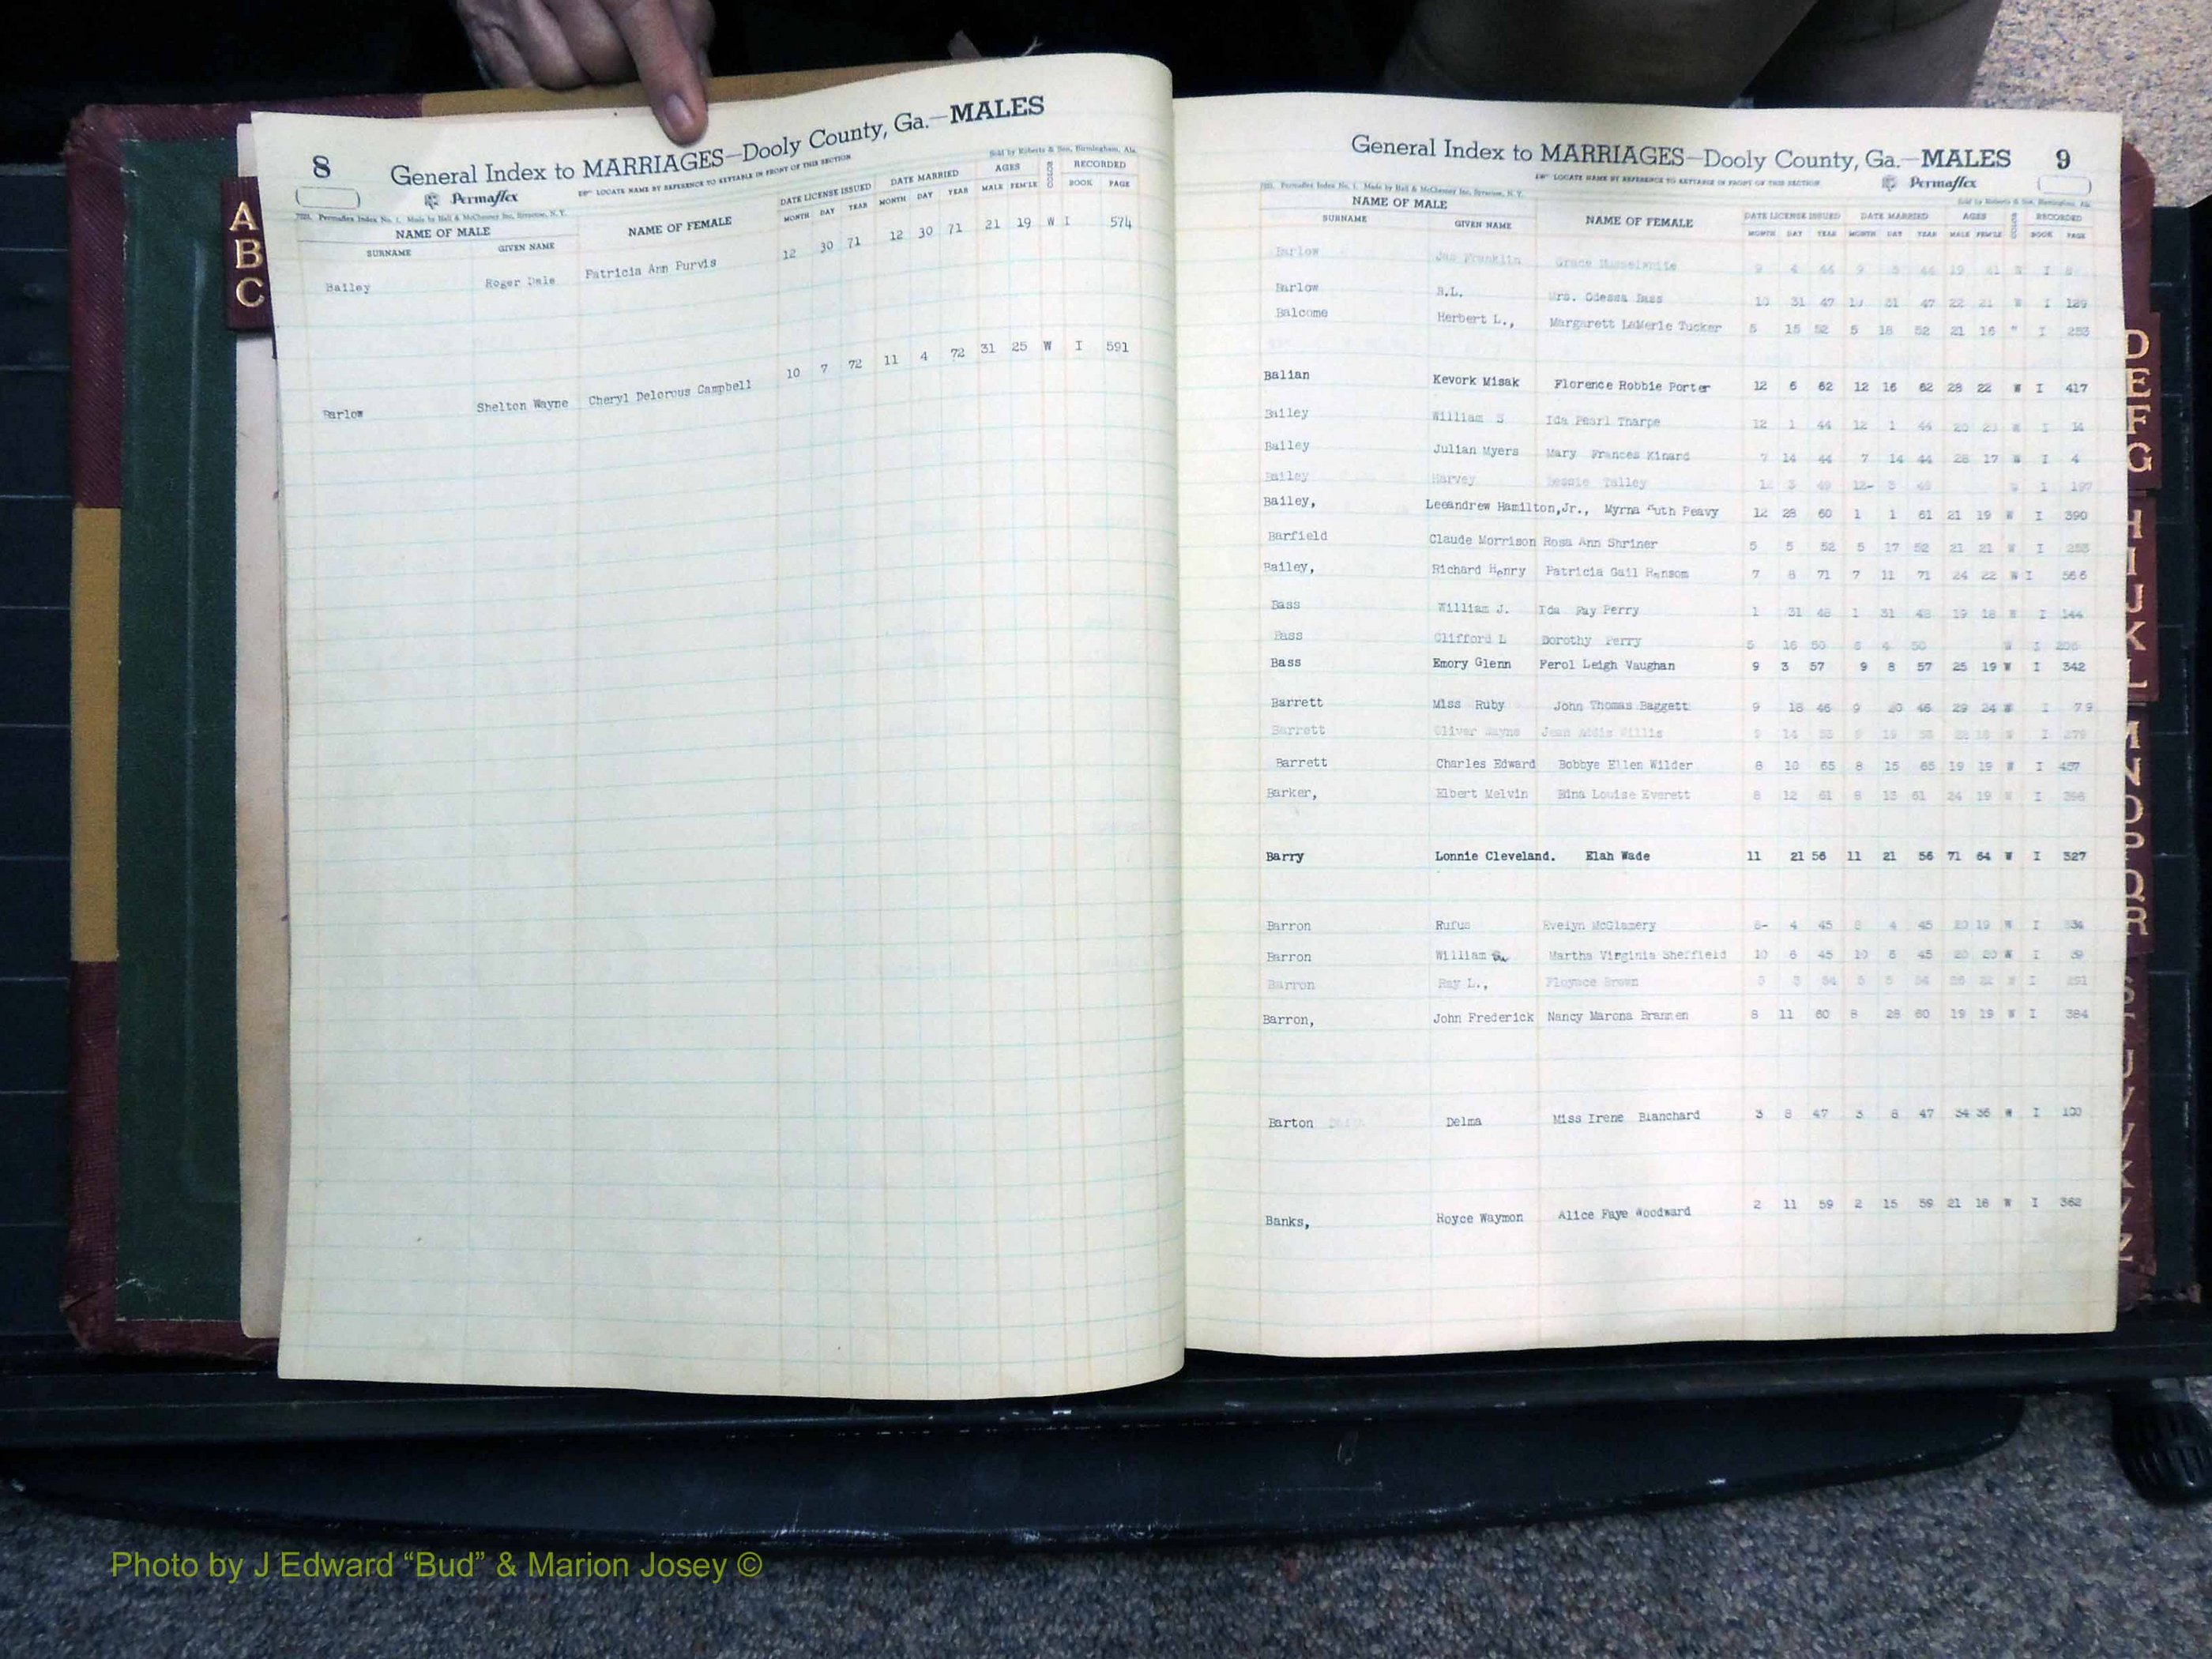 8
General Index to MARRIAGES—Dooly County, Ga.—MALES
Permaflex
LOCATE NAME BY REFERENCE TO KEYTABLE IN FRONT OF THIS SECTION
Sold by Roberts & Son, Birmingham, Ala.
7021. Permaflex Index No. 1. Made by Hall & McChesney Inc, Syracuse, N. Y.
NAME OF MALE NAME OF FEMALE DATE LICENSE ISSUED DATE MARRIED AGES COLOR RECORDED
SURNAME GIVEN NAME MONTH DAY YEAR MONTH DAY YEAR MALE FEM'LE BOOK PAGE
Bailey Roger Dale Patricia Ann Purvis 12 30 71 12 30 71 21 19 W I 574
Barlow Shelton Wayne Cheryl Delorous Campbell 10 7 72 11 4 72 31 25 W I 591
A
B
C
General Index to MARRIAGES—Dooly County, Ga.—MALES 9
LOCATE NAME BY REFERENCE TO KEYTABLE IN FRONT OF THIS SECTION
Permaflex
7021. Permaflex Index No. 1. Made by Hall & McChesney Inc, Syracuse, N. Y.
Sold by Roberts & Son, Birmingham, Ala.
NAME OF MALE NAME OF FEMALE DATE LICENSE ISSUED DATE MARRIED AGES COLOR RECORDED
SURNAME GIVEN NAME MONTH DAY YEAR MONTH DAY YEAR MALE FEM'LE BOOK PAGE
Barlow Jas Franklin Grace Musselwhite 9 4 44 9 44 19 W I
Barlow Mrs. Odessa Bass 10 31 47 10 31 47 22 21 W I 189
Balcome Herbert L., Margarett LaMerle Tucker 5 15 52 5 18 52 21 16 " I 253
Balian Kevork Misak Florence Robbie Porter 12 6 62 12 16 62 28 22 W I 417
Bailey William S Ida Pearl Tharpe 12 1 44 12 1 44 W I 14
Bailey Julian Myers Mary Frances Kinard 7 14 44 7 14 44 28 17 W I 4
Bailey Harvey Bessie Talley 3 49 12- 3 49 W I 197
Bailey, Leeandrew Hamilton,Jr., Myrna Ruth Peavy 12 28 60 1 1 61 21 19 W I 390
Barfield Claude Morrison Rosa Ann Shriner 5 5 52 5 17 52 21 21 W I
Bailey, Richard Henry Patricia Gail Ransom 7 8 71 7 11 71 24 22 W I 566
Bass William J. Ida Fay Perry 1 31 48 1 31 48 19 18 W I 144
Bass Clifford L Dorothy Perry 5 16 50 6 4 50 W I
Bass Emory Glenn Ferol Leigh Vaughan 9 3 57 9 8 57 25 19 W I 342
Barrett Miss Ruby John Thomas Baggett 9 18 46 9 20 46 29 24 W I 79
Barrett Oliver Wayne Jean Addie Willis 9 14 9 19 W I 279
Barrett Charles Edward Bobbye Ellen Wilder 8 10 65 8 15 65 19 19 W I 457
Barker, Elbert Melvin Edna Louise Everett 8 12 61 8 13 61 24 19 W I
Barry Lonnie Cleveland. Elah Wade 11 21 56 11 21 56 71 64 W I 327
Barron Rufus Evelyn McGlamery 4 45 8 4 45 20 19 W I
Barron William Martha Virginia Sheffield 10 6 45 10 6 45 20 20 W I
Barron Ray L., Floynce Brown 54 W I 291
Barron, John Frederick Nancy Marona Brannen 8 11 60 8 28 60 19 19 W I 384
Barton Delma Miss Irene Blanchard 3 8 47 3 8 47 34 36 W I 100
Banks, Royce Waymon Alice Faye Woodward 2 11 59 2 15 59 21 18 W I 362
D
E
F
G
H
I
J
K
L
M
N
O
P
Q
R
S
T
U
V
Photo by J Edward “Bud” & Marion Josey ©